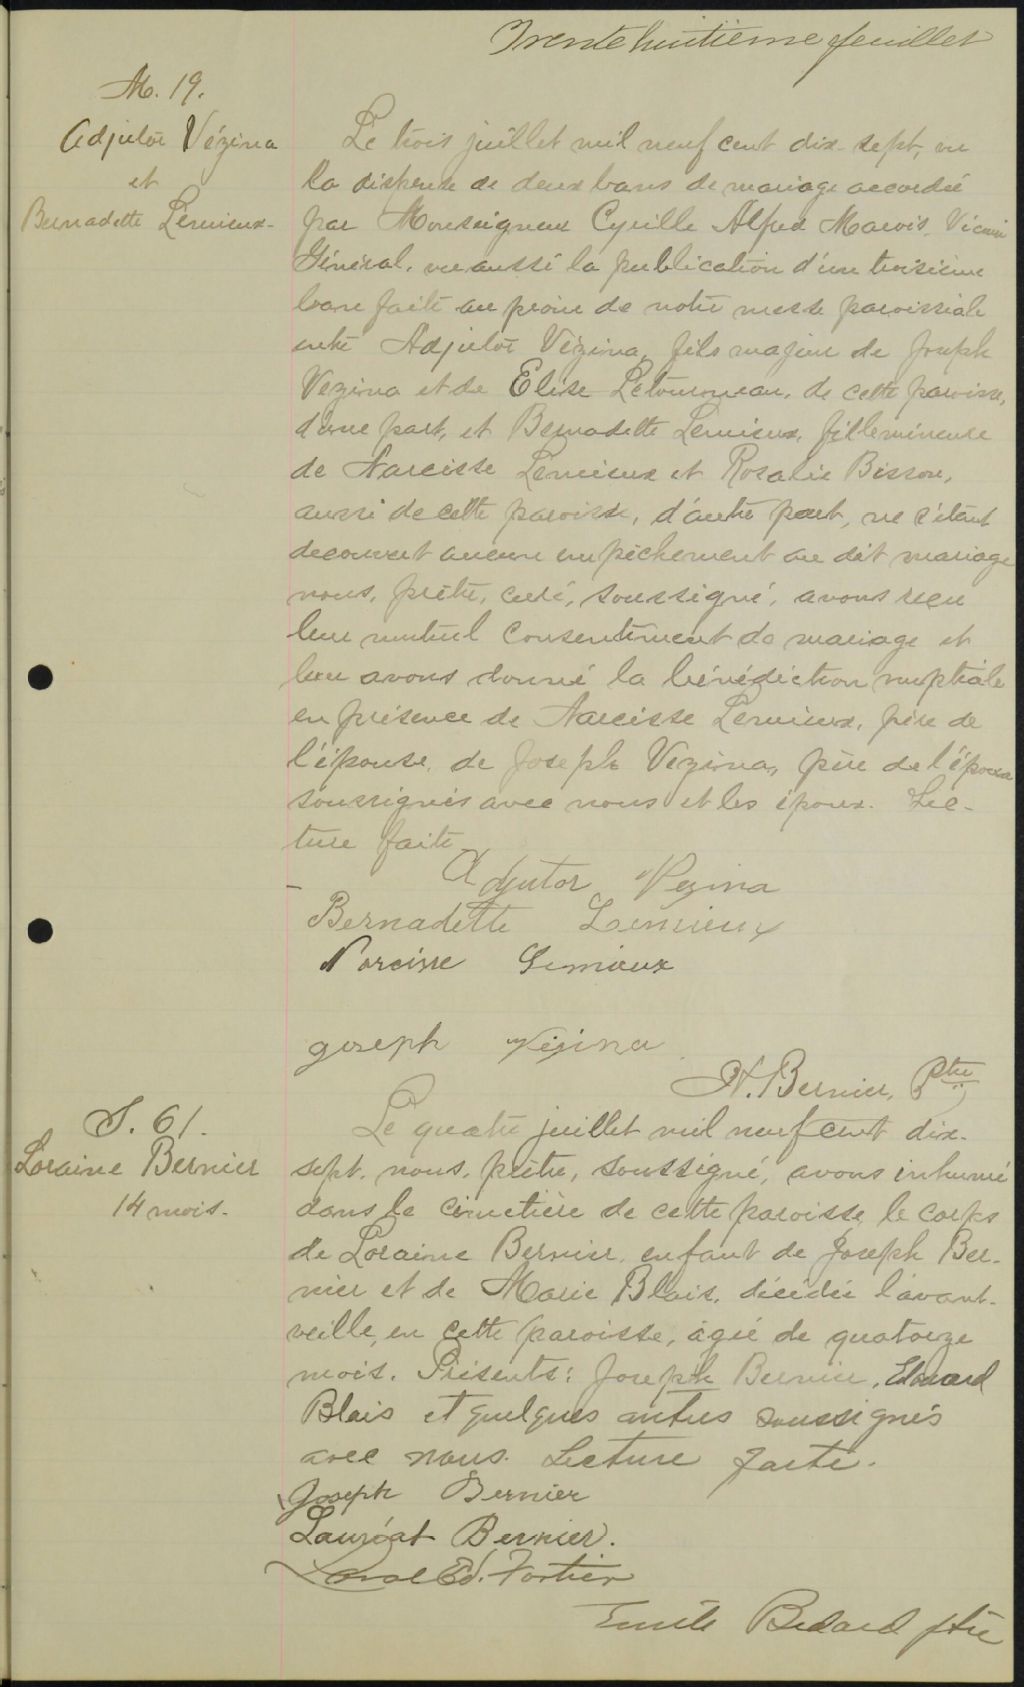 Trente huitième feuillet
M. 19.
Adjutor Vézina
et
Bernadette Lemieux.
Le trois juillet mil neuf cent dix-sept, vu
la dispense de deux bans de mariage accordée
par Monseigneur Cyrille Alfred Marois, Vicaire
Général, vu aussi la publication d'un troisième
ban faite au prône de notre messe paroissiale
entre Adjutor Vézina, fils majeur de Joseph
Vezina et de Elise Letourneau, de cette paroisse,
d'une part, et Bernadette Lemieux, fille mineure
de Narcisse Lemieux et Rosalie Bisson,
aussi de cette paroisse, d'autre part, ne s'étant
decouvert aucun empêchement au dit mariage
nous, prêtre, curé, soussigné, avons reçu
leur mutuel consentement de mariage et
leur avons donné la bénédiction nuptiale
en présence de Narcisse Lemieux, père de
l'épouse, de Joseph Vezina, père de l'époux
soussignés avec nous et les époux. Lec-
ture faite
Adjutor Vezina
Bernadette Lemieux
Narcisse Lemieux
joseph Vézina
N. Bernier, Ptre
S. 61.
Loraine Bernier
14 mois.
Le quatre juillet mil neuf cent dix-
sept, nous, prêtre, soussigné, avons inhumé
dans le cimetière de cette paroisse, le corps
de Loraine Bernier, enfant de Joseph Ber-
nier et de Marie Blais, décédée l'avant-
veille, en cette paroisse, agée de quatorze
mois. Présents: Joseph Bernier, Edouard
Blais et quelques autres soussignés
avec nous. Lecture faite.
Joseph Bernier
Lauréat Bernier.
Ed. Fortier
Emile Bedard ptre